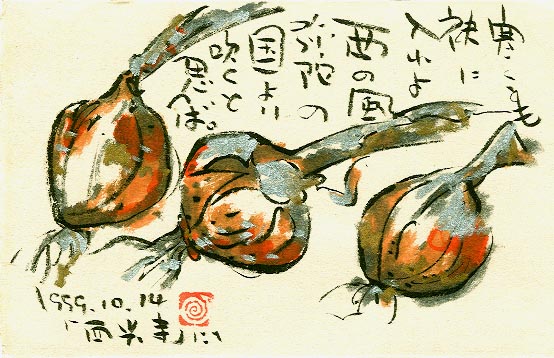 寒くも
袂に
入れよ
西の風
弥陀の
国より
吹くと
思へば。
1999.10.14
「西光寺」にて